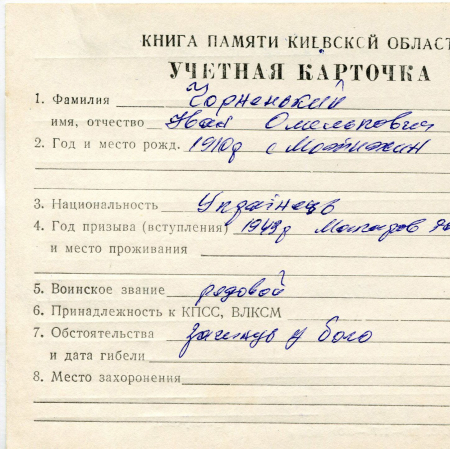 КНИГА ПАМЯТИ КИЕВСКОЙ ОБЛАСТ
УЧЕТНАЯ КАРТОЧКА
1. Фамилия Чорненький
имя, отчество Іван Омелькович
2. Год и место рожд. 1910р с Мотижин
3. Национальность Українець
4. Год призыва (вступления) 1943р Макарів
и место проживания
5. Воинское звание рядовой
6. Принадлежность к КПСС, ВЛКСМ
7. Обстоятельства загинув у бою
и дата гибели
8. Место захоронения